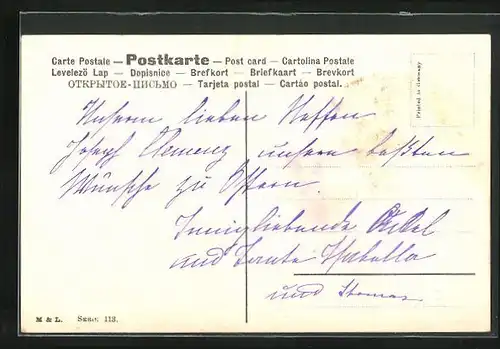 Carte Postale — Postkarte — Post card — Cartolina Postale
Levelező Lap — Dopisnice — Brefkort — Briefkaart — Brevkort
ОТКРЫТОЕ-ПИСЬМО — Tarjeta postal — Cartão postal.
Printed in Germany
Unserm lieben Neffen
Joseph Clemenz unsere besten
Wünsche zu Ostern.
Innigliebende Onkel
und Tante Isabella
und Thomas
M & L. Serie 113.